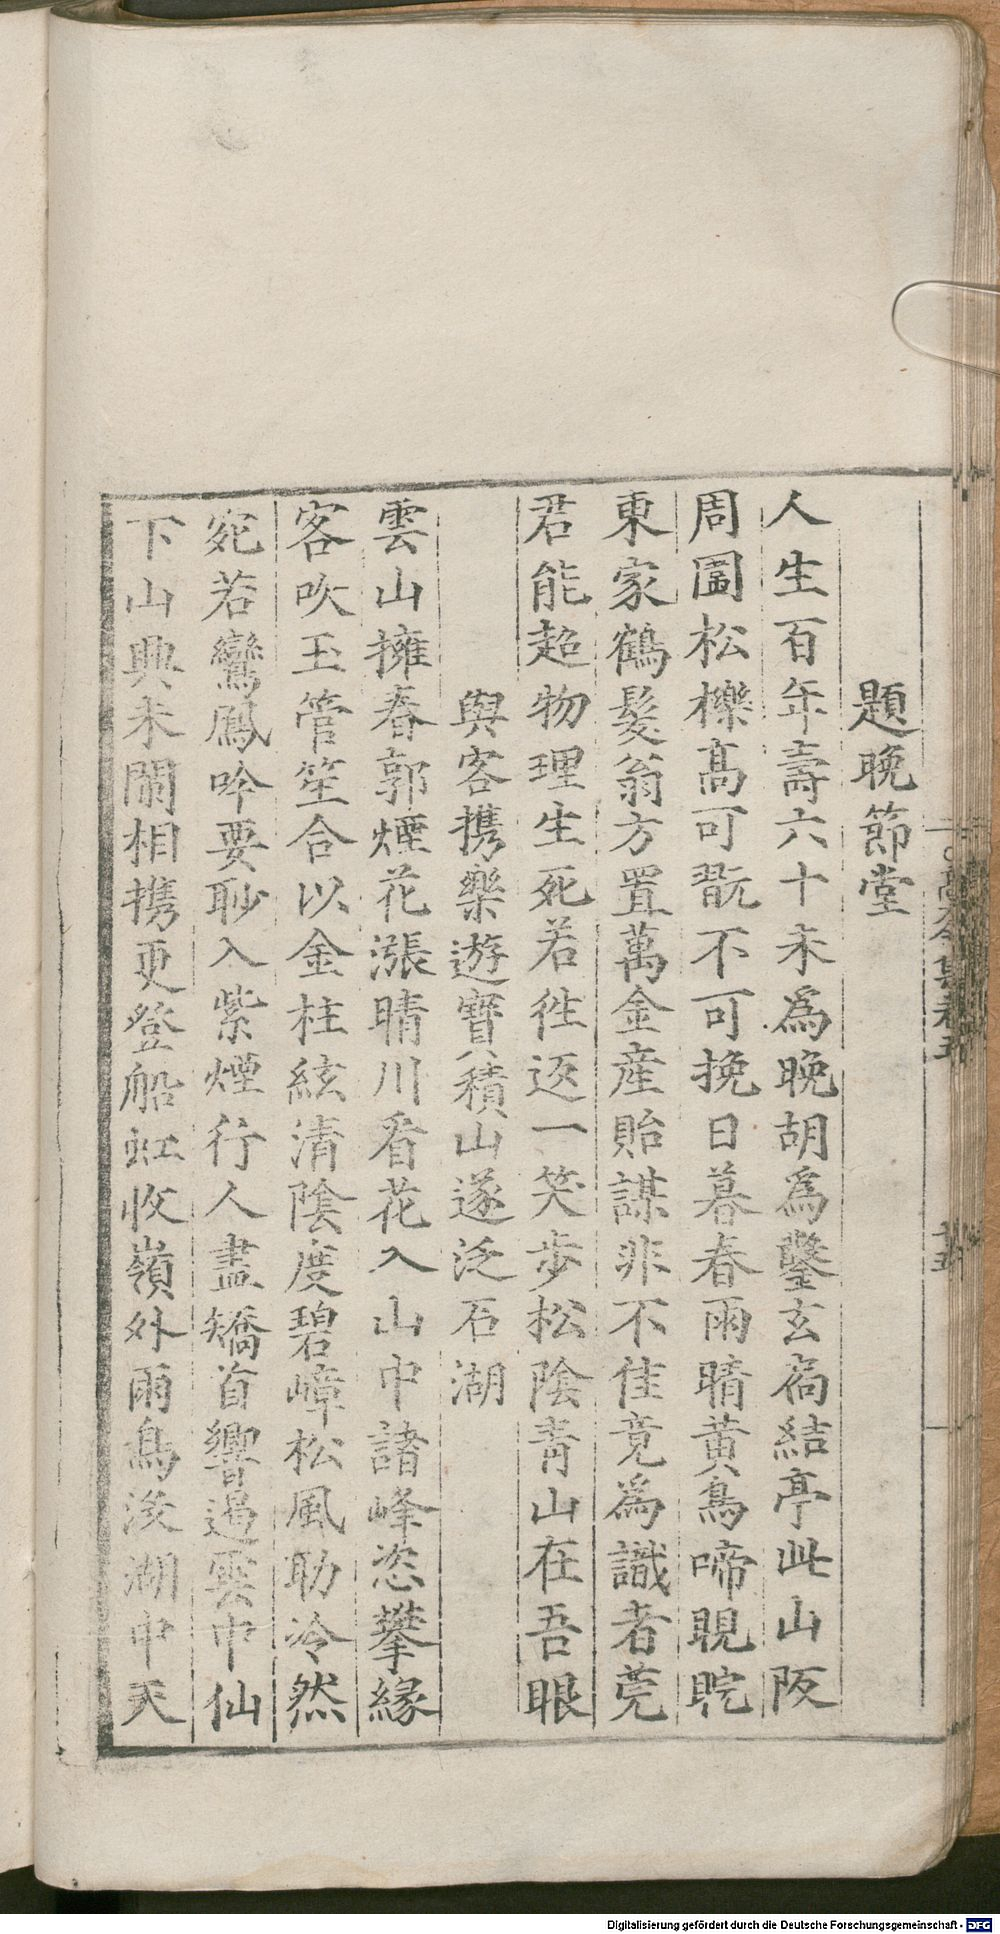 題晚節堂
人生百年壽六十未為晚胡為鑿玄扃結亭此山阪
周圍松櫟髙可翫不可挽日暮春雨晴黄鳥啼睍睆
東家鶴髮翁方置萬金産貽謀非不佳竟為識者莞
君能超物理生死若徃返一笑步松陰青山在吾眼
與客携樂遊寶積山遂泛石湖
雲山擁春郭煙花漲晴川看花入山中諸峰恣攀緣
客吹玉管笙合以金柱絃清陰度碧嶂松風助泠然
宛若鸞鳳吟要眇入紫煙行人盡矯首響遏雲中仙
下山興未闌相携更登船虹收嶺外雨鳥沒湖中天
Digitalisierung gefördert durch die Deutsche Forschungsgemeinschaft - DFG